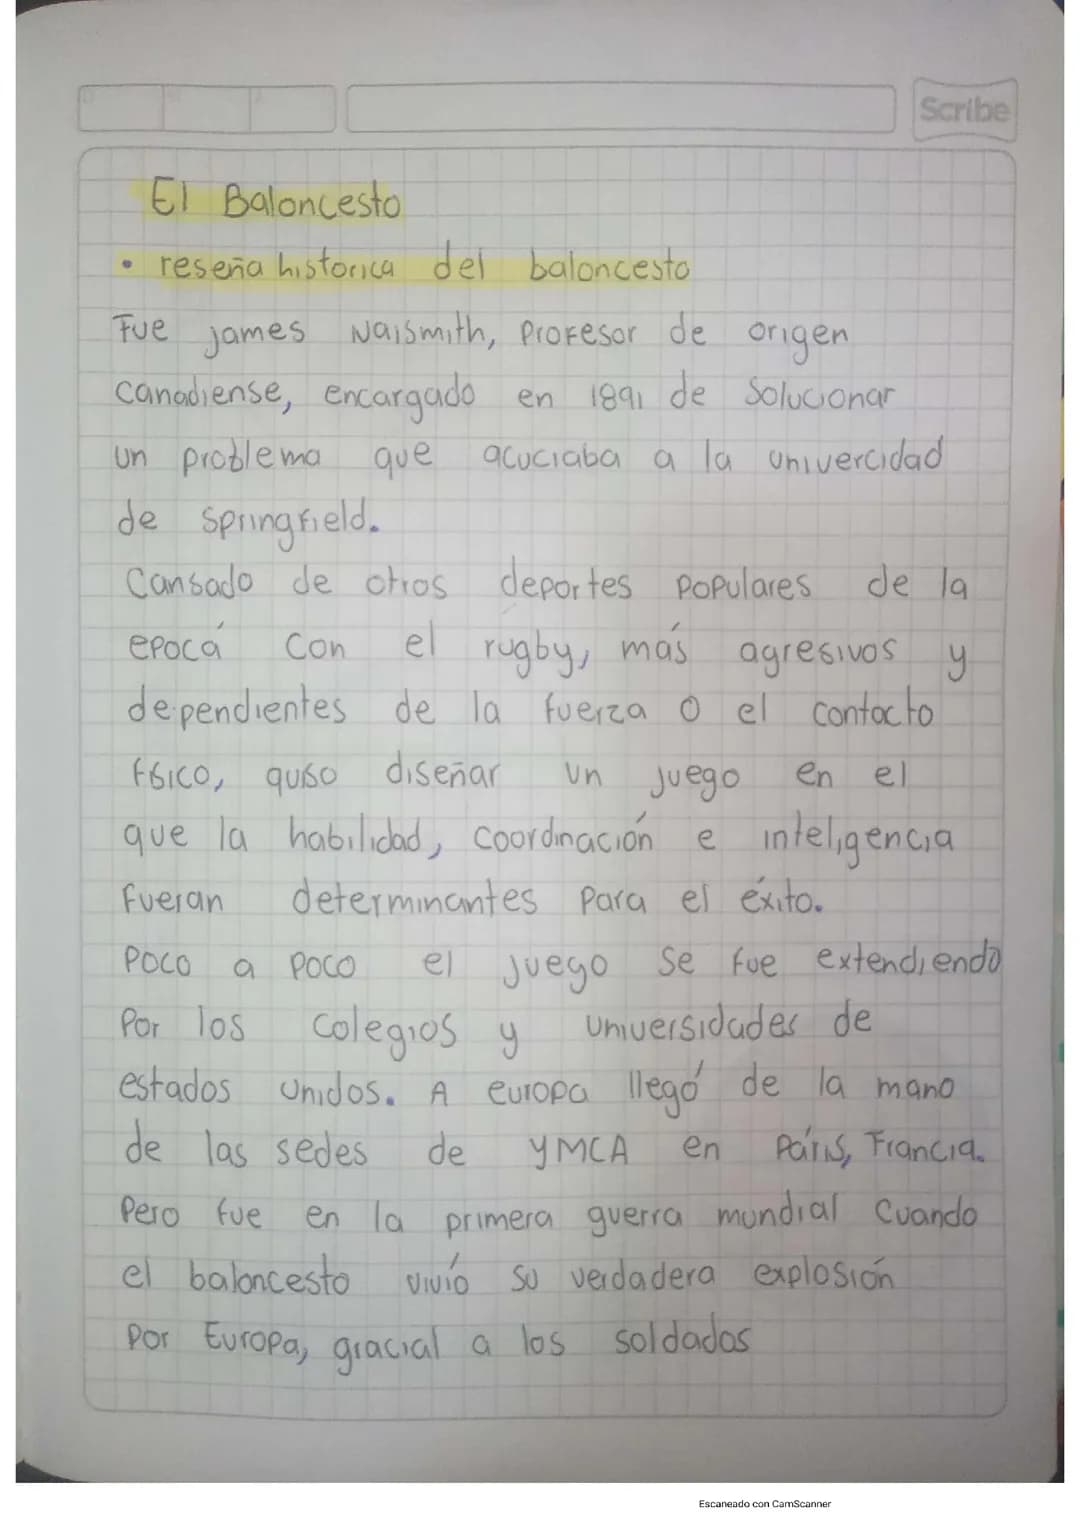 Scribe
El Baloncesto
• reseña historica del baloncesto
Fue james Naismith, Profesor de origen
canadiense, encargado en 1891 de Solucionar
un problema que acuciaba a la univercidad
de springfield.
Cansado de otros deportes populares de la
epocá con el rugby, más agresivos y
dependientes de la fuerza o el contacto
físico, quiso diseñar un juego en el
que la habilidad, coordinación e inteligencia
fueran determinantes para el éxito.
Poco a poco el juego se fue extendiendo
Por los colegios y universidades de
estados unidos. A europa llegó de la mano
de las sedes de YMCA en París, Francia.
Pero fue en la primera guerra mundial cuando
el baloncesto vivió su verdadera explosión
por Europa, gracial a los soldados
Escaneado con CamScanner